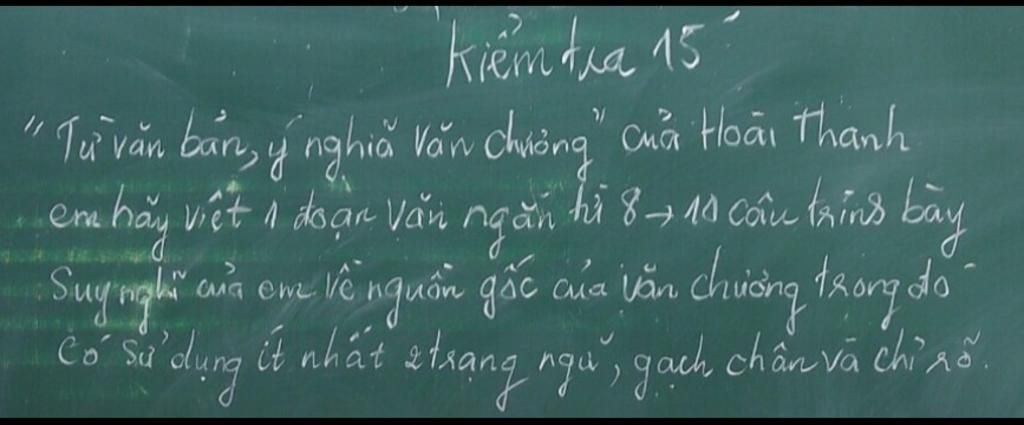 Kiểm tra 15'
"Từ văn bản, ý nghĩa văn chương" của Hoài Thanh
em hãy viết 1 đoạn văn ngắn từ 8 → 10 câu trình bày
Suy nghĩ của em về nguồn gốc của văn chương trong đó
có sử dụng ít nhất 2 trạng ngữ, gạch chân và chỉ rõ.